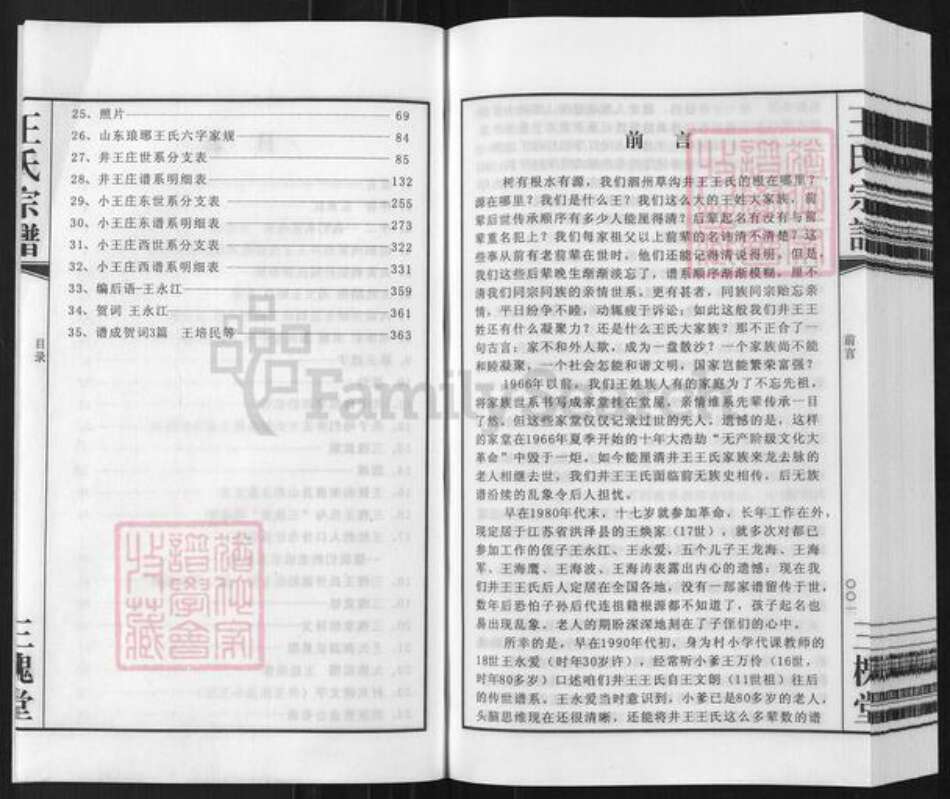 王氏宗譜
目录
三槐堂
25、照片 69
26、山东琅琊王氏六字家规 84
27、井王庄世系分支表 85
28、井王庄谱系明细表 132
29、小王庄东世系分支表 255
30、小王庄东谱系明细表 273
31、小王庄西世系分支表 322
32、小王庄西谱系明细表 331
33、编后语-王永江 359
34、贺词 王永江 361
35、谱成贺词3篇 王培民等 363
前言
树有根水有源，我们泗州草沟井王王氏的根在哪里？
源在哪里？我们是什么王？我们这么大的王姓大家族，前
辈后世传承顺序有多少人能厘得清？后辈起名有没有与前
辈重名犯上？我们每家祖父以上前辈的名讳清不清楚？这
些事从前有老前辈在世时，他们还能记得清说得明，但是，
我们这些后辈晚生渐渐淡忘了，谱系顺序渐渐模糊，厘不
清我们同宗同族的亲情世系。更有甚者，同族同宗贻忘亲
情，平日纷争不睦，动辄疲于诉讼；如此这般我们井王王
姓还有什么凝聚力？还是什么王氏大家族？那不正合了一
句古言：家不和外人欺，成为一盘散沙？一个家族尚不能
和睦凝聚，一个社会怎能和谐文明，国家岂能繁荣富强？
1966年以前，我们王姓族人有的家庭为了不忘先祖，
将家族世系书写成家堂挂在堂屋，亲情维系先辈传承一目
了然，但这些家堂仅仅记录过世的先人。遗憾的是，这样
的家堂在1966年夏季开始的十年大浩劫“无产阶级文化大
革命”中毁于一炬。如今能厘清井王王氏家族来龙去脉的
老人相继去世，我们井王王氏面临前无族史相传，后无族
谱沿续的乱象令后人担忧。
早在1980年代末，十七岁就参加革命，长年工作在外，
现定居于江苏省洪泽县的王焕家（17世），就多次对都已
参加工作的侄子王永江、王永爱，五个儿子王龙海、王海
军、王海鹰、王海波、王海涛表露出内心的遗憾：现在我
们井王王氏后人定居在全国各地，没有一部家谱留传于世，
数年后恐怕子孙后代连祖籍根源都不知道了，孩子起名也
易出现乱象。老人的期盼深深地刻在了子侄们的心中。
所幸的是，早在1990年代初，身为村小学代课教师的
18世王永爱（时年30岁许），经常听小爹王万伶（16世，
时年80多岁）口述咱们井王王氏自王文朗（11世祖）往后
的传世谱系，王永爱当时意识到，小爹已是80多岁的老人，
头脑思维现在还很清晰，还能将井王王氏这么多辈数的谱
前言
〇〇一
FamilySearch